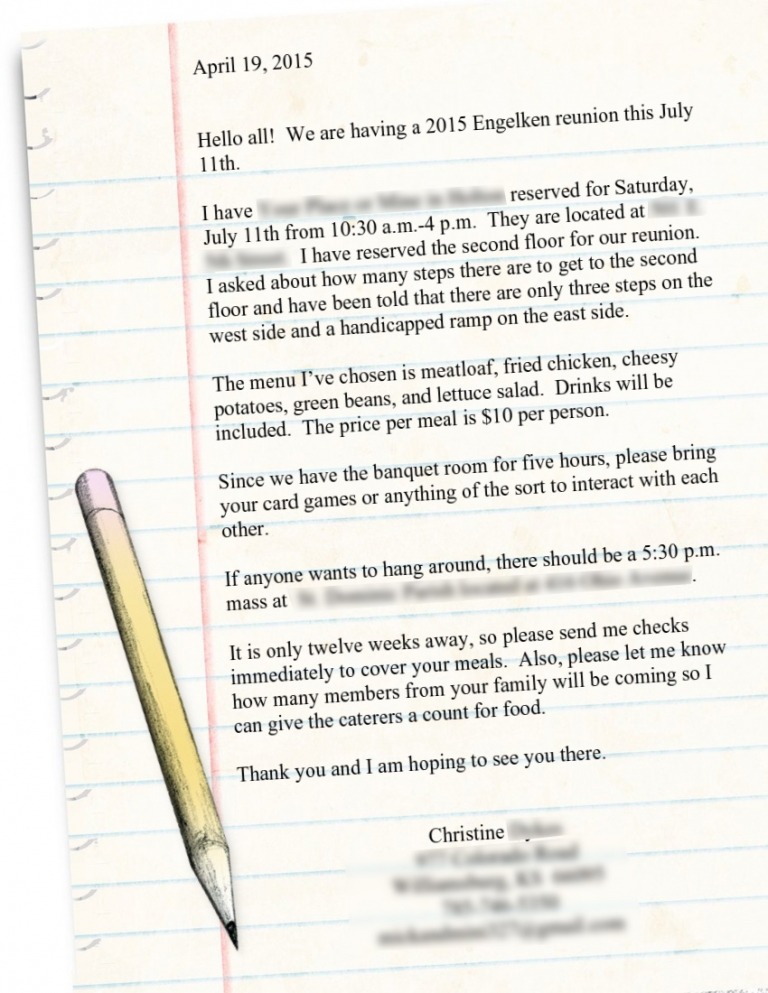 April 19, 2015
Hello all!  We are having a 2015 Engelken reunion this July
11th.
I have reserved for Saturday,
July 11th from 10:30 a.m.-4 p.m.  They are located at
I have reserved the second floor for our reunion.
I asked about how many steps there are to get to the second
floor and have been told that there are only three steps on the
west side and a handicapped ramp on the east side.
The menu I’ve chosen is meatloaf, fried chicken, cheesy
potatoes, green beans, and lettuce salad.  Drinks will be
included.  The price per meal is $10 per person.
Since we have the banquet room for five hours, please bring
your card games or anything of the sort to interact with each
other.
If anyone wants to hang around, there should be a 5:30 p.m.
mass at .
It is only twelve weeks away, so please send me checks
immediately to cover your meals.  Also, please let me know
how many members from your family will be coming so I
can give the caterers a count for food.
Thank you and I am hoping to see you there.
Christine